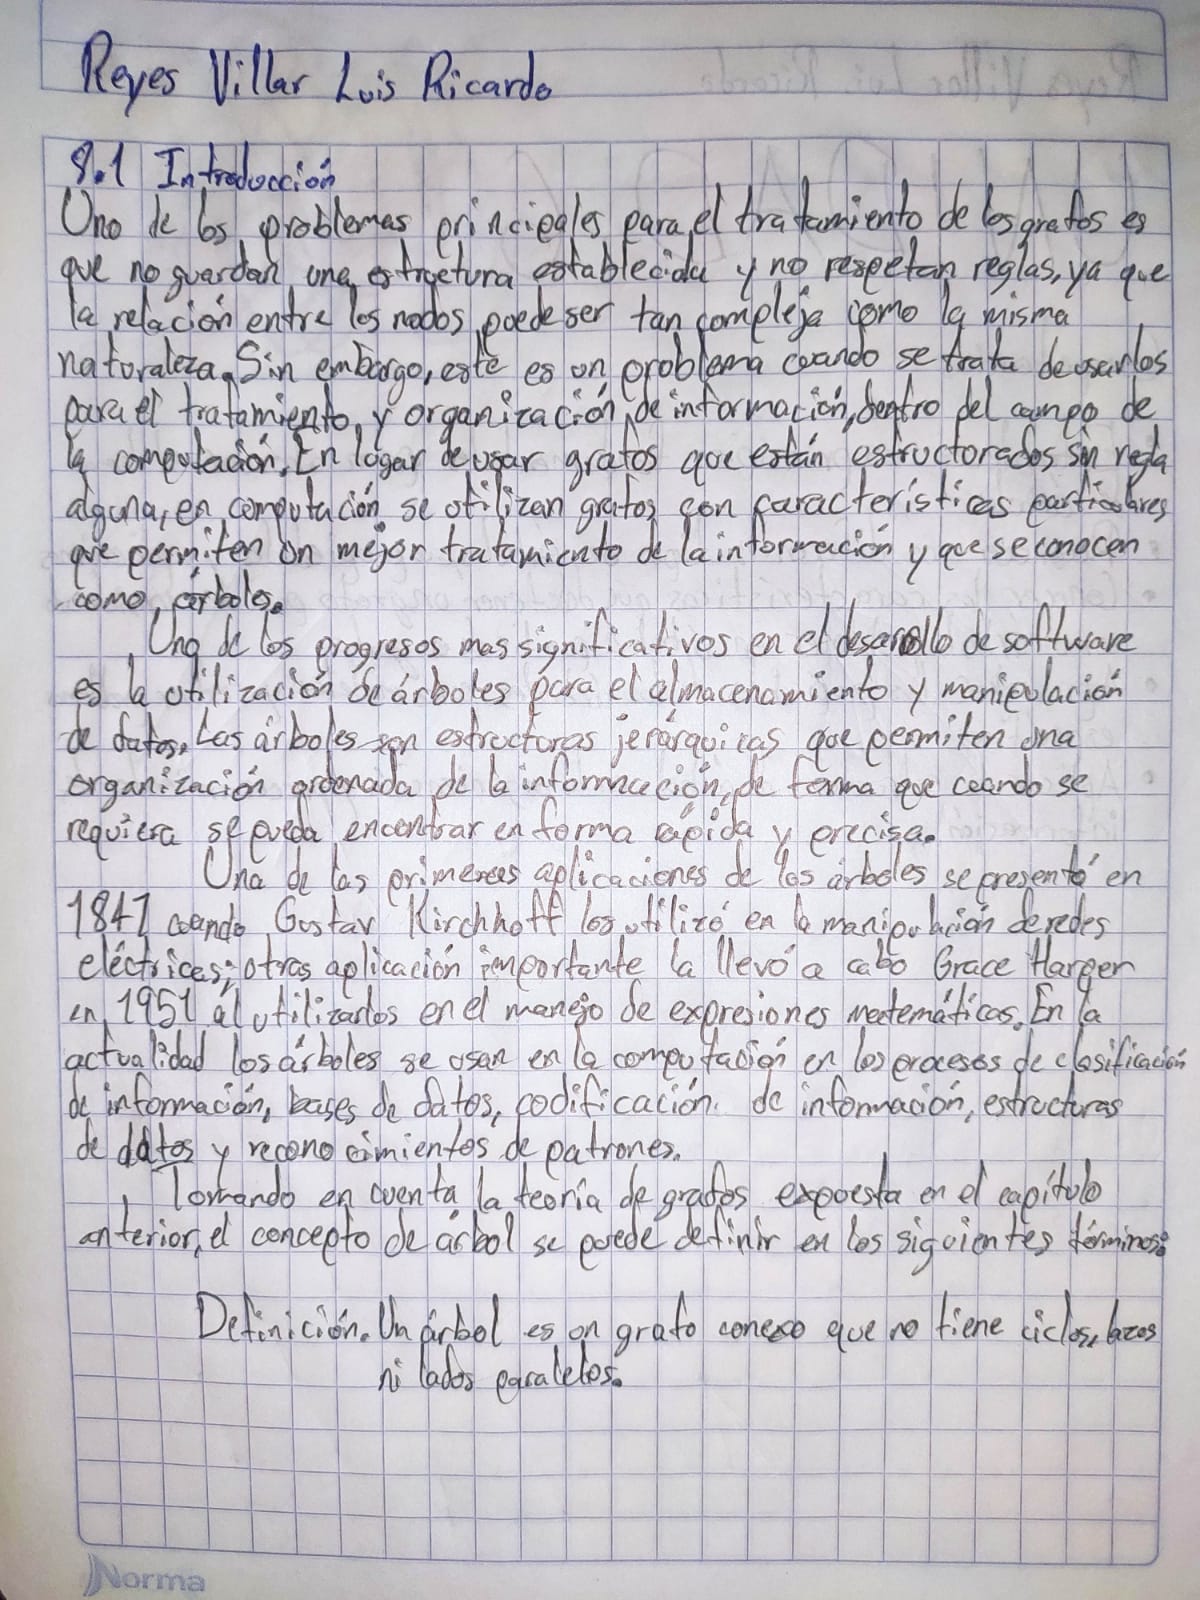 Reyes Villar Luis Ricardo
8.1 Introducción
Uno de los problemas principales para el tratamiento de los grafos es
que no guardan una estructura establecida y no respetan reglas, ya que
la relación entre los nodos puede ser tan compleja como la misma
naturaleza. Sin embargo, este es un problema cuando se trata de usarlos
para el tratamiento y organización de información, dentro del campo de
la computación. En lugar de usar grafos que están estructurados sin regla
alguna, en computación se utilizan grafos con características particulares
que permiten un mejor tratamiento de la información y que se conocen
como árboles.
Uno de los progresos mas significativos en el desarollo de software
es la utilización de árboles para el almacenamiento y manipulación
de datos. Los árboles son estructuras jerárquicas que permiten una
organización ordenada de la información, de forma que cuando se
requiera se pueda encontrar en forma rápida y precisa.
Una de las primeras aplicaciones de los árboles se presentó en
1847 cuando Gustav Kirchhoff los utilizó en la manipulación de redes
eléctricas; otras aplicación importante la llevó a cabo Grace Harper
en 1951 al utilizarlos en el manejo de expresiones matemáticas. En la
actualidad los árboles se usan en la computación en los procesos de clasificación
de información, bases de datos, codificación de información, estructuras
de datos y reconocimientos de patrones.
Tomando en cuenta la teoría de grafos expuesta en el capítulo
anterior, el concepto de árbol se puede definir en los siguientes términos:
Definición. Un árbol es un grafo conexo que no tiene ciclos, lazos
ni lados paralelos.
Norma